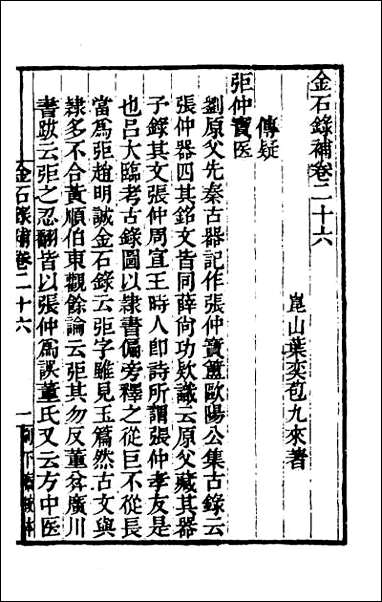 金石錄補卷二十六
崑山葉奕苞九來著
傳疑
弡仲寶医
劉原父先秦古器記作張仲寶簠歐陽公集古錄云
張仲器四其銘文皆同薛尚功欵識云原父藏其器
子錄其文張仲周宣王時人即詩所謂張仲孝友是
也呂大臨考古錄圖以隸書偏旁釋之從巨不從長
當為弡趙明誠金石錄云弡字雖見玉篇然古文與
隸多不合黃順伯東觀餘論云弡其勿反董苃廣川
書跋云弡之忍翻皆以張仲為誤董氏又云方中医
金石錄補卷二十六
一